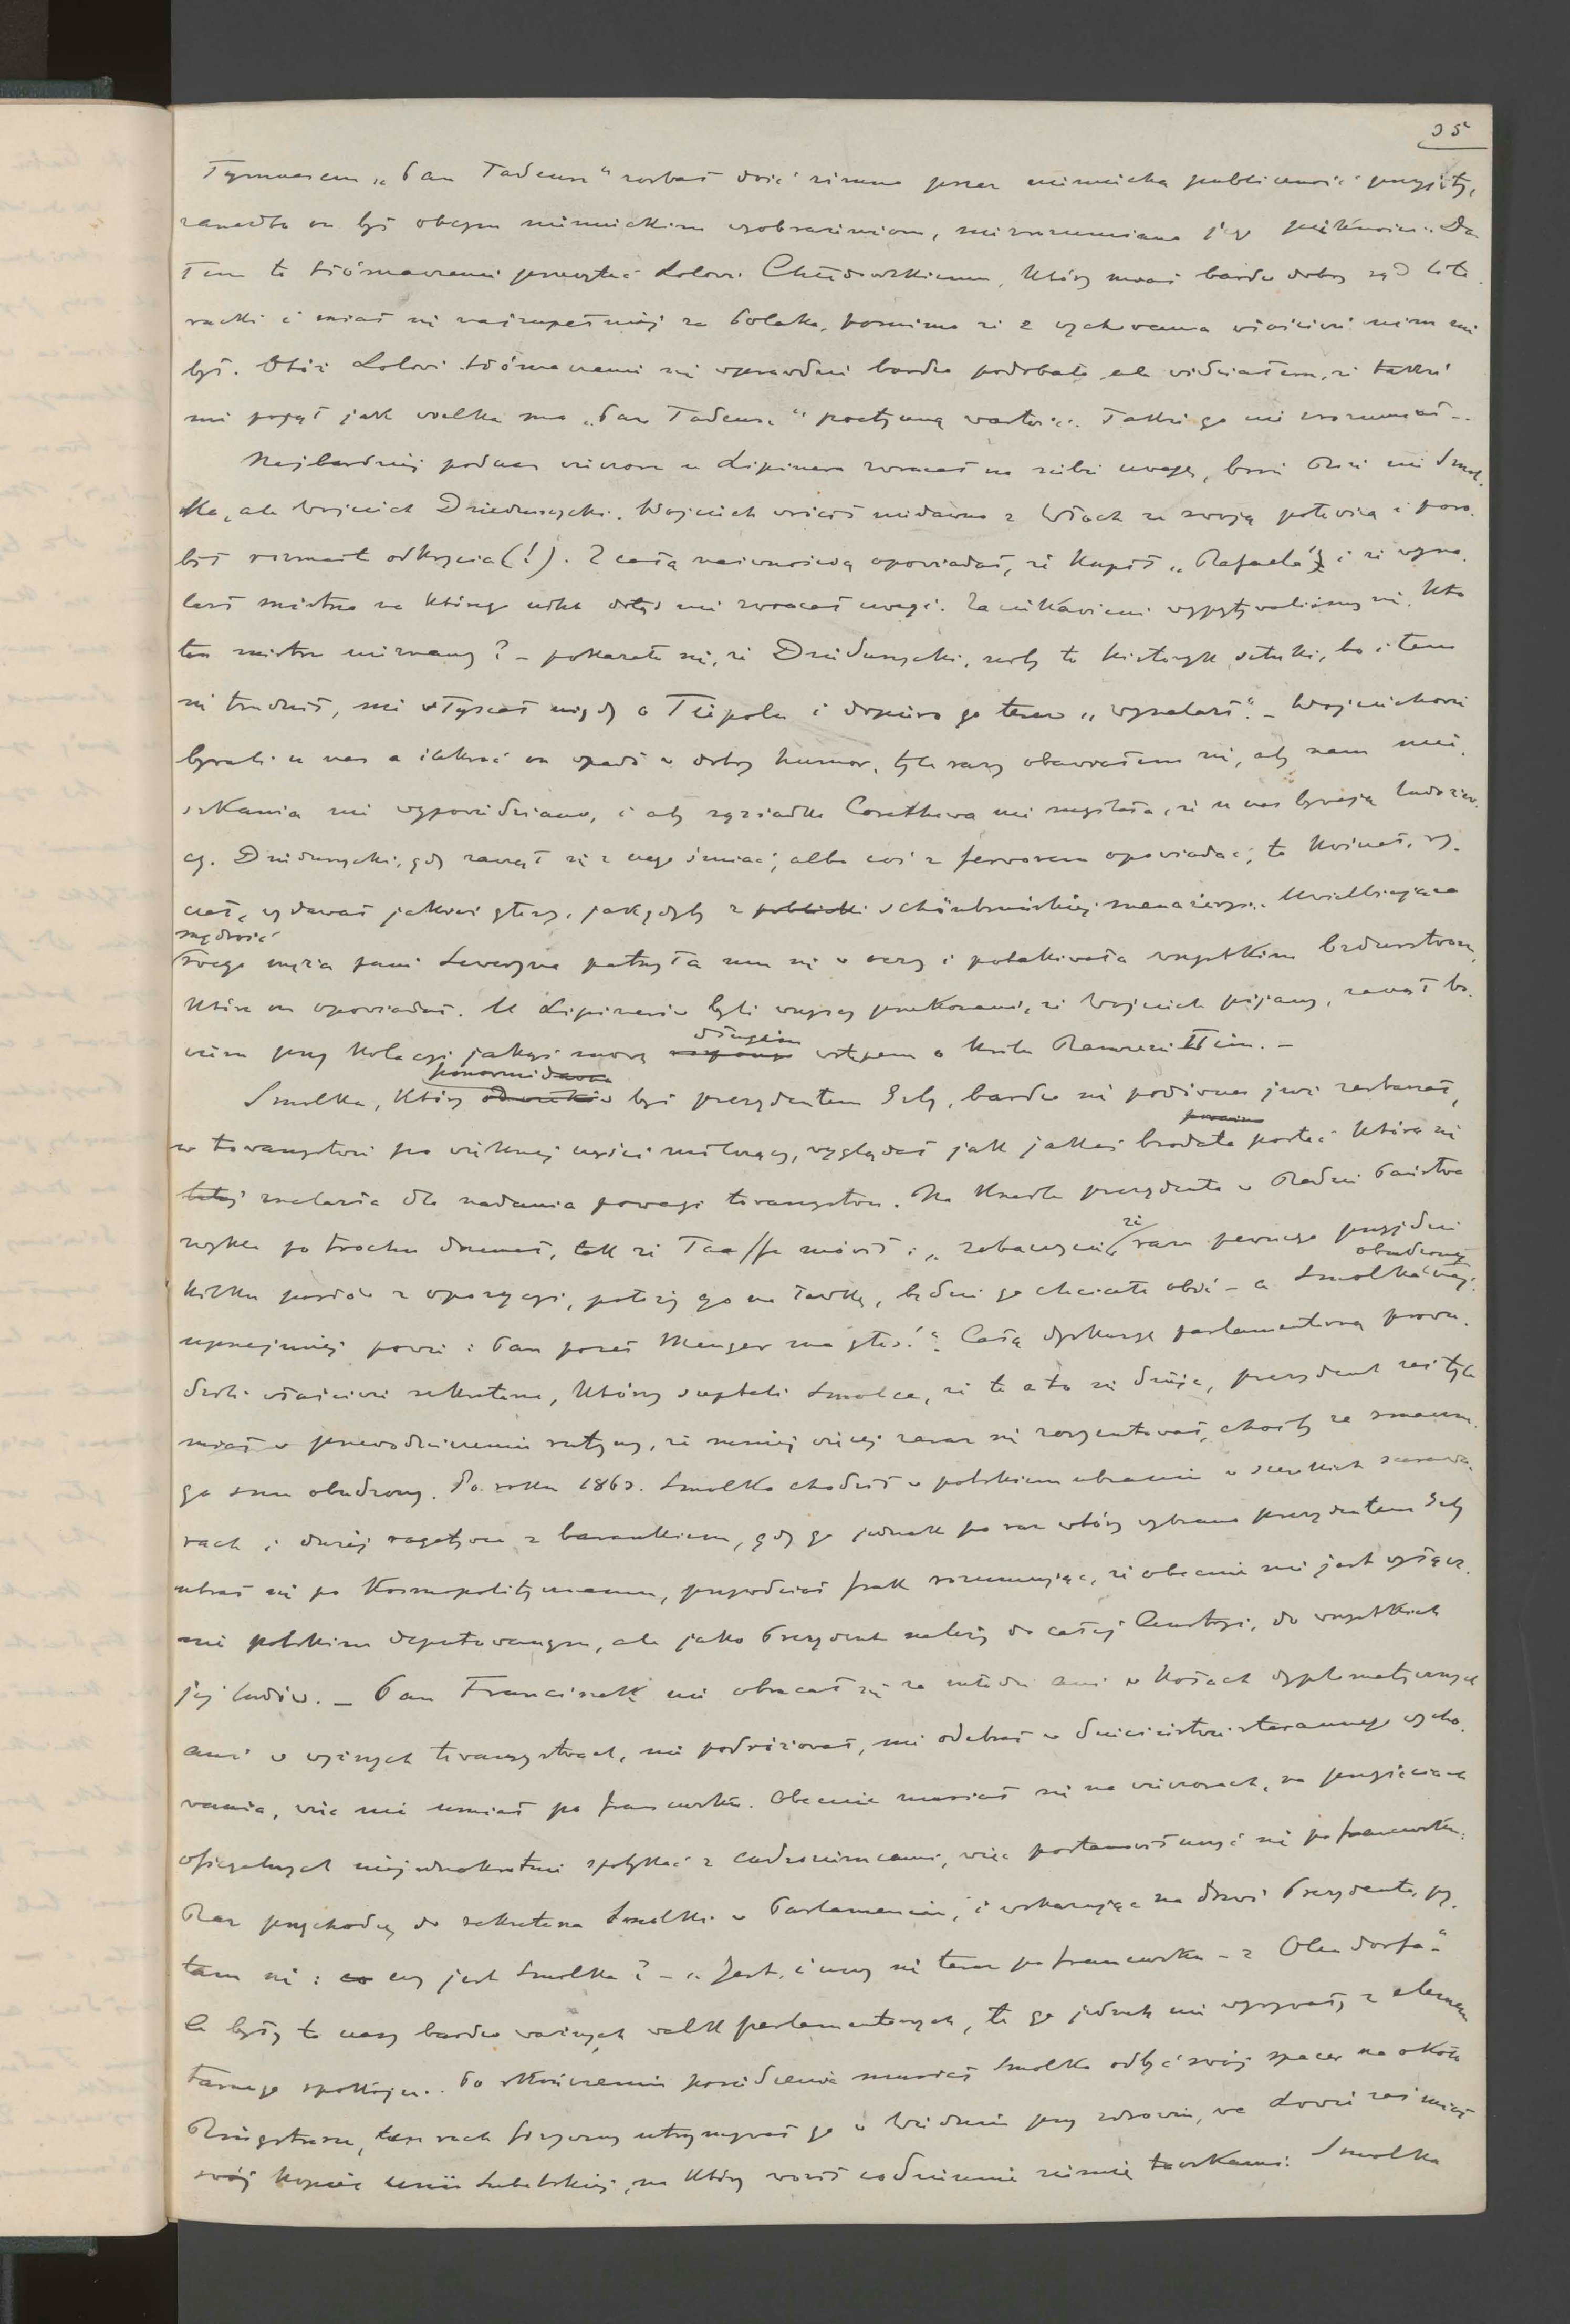 35
Tymczasem „Pan Tadeusz" został dość zimno przez niemiecką publiczność przyjęty,
zanadto on był obcym niemieckim wyobrażeniom, nie zrozumiano jego piękności. Da-
łem to tłómaczenie przeczytać Lolowi Chłędowskiemu, który miał bardzo dobry sąd lite-
racki i miał się najzupełniej za Polaka, pomimo że z wychowania właściwie nim nie
był. Otóż Lolowi tłómaczenie się wprawdzie bardzo podobało ale widziałem, że także
nie pojął jak wielką ma „Pan Tadeusz" poetyczną wartość. Także go nie zrozumiał. -
Najbardziej podczas wieczoru u Lipinera zwracał na siebie uwagę, bo nie Smol-
ka, ale Wojciech Dzieduszycki. Wojciech wrócił niedawno z Włoch ze swoją połowicą i poro-
bił rozmaite odkrycia (!). Z całą naiwnością opowiadał, że kupił „Rafaela" i że wyna-
lazł mistrza na którego nikt dotąd nie zwracał uwagi. Zaciekawieni wypytywaliśmy się, kto
ten mistrz nieznany? - pokazało się, że Dzieduszycki, niby to historyk sztuki, bo i tem
się trudnił, nie słyszał nigdy o Tiepolu i dopiero go teraz „wynalazł". - Wojciechowie
bywali u nas a ilekroć on wpadł w dobry humor, tyle razy obawiałem się, aby nam miesz-
szkania nie wypowiedziano, i aby sąsiadka nie myślała, że u nas bywają ludożer-
cy. Dzieduszycki, gdy zaczął się z czego śmiać, albo coś z ferworem opowiadać, to kwiczał, ry-
czał, wydawał jakieś głosy, jak gdyby z schönbruńskiej menażeryi. Uwielbiająca
mądrość
swego męża pani Seweryna patrzyła mu się w oczy i potakiwała wszystkim bredniom
które on opowiadał. U Lipinerów byli wszyscy przekonani, że Wojciech pijany, zaczął bo-
wiem przy kolacyi jakąś mowę długim wstępem o królu Ramzesie IIim. -
Smolka, który ponownie był prezydentem Izby, bardzo się podówczas już zestarzał,
w towarzystwie po większej części milczący, wyglądał jak jakaś brodata postać która się
znalazła dla nadania powagi towarzystwu. Na krześle prezydenta w Radzie Państwa
zwykle po trochu drzemał, tak że Taaffe mówił: „zobaczycie, że raz pewnego przyjdzie
kilku posłów z opozycyi, położy go na ławkę, będzie go chciało obić - a Smolka obudzony naj-
uprzejmiej powie: Pan poseł Menger ma głos!". Całą dyskusyę parlamentarną prowa-
dzili właściwie sekretarze, którzy szeptali Smolce, że to a to się dzieje, prezydent zaś tyle
miał w przewodniczeniu rutyny, że mniej więcej zaraz się zoryentował, choćby ze smaczne-
go snu obudzony. Po roku 1863. Smolka chodził w polskiem ubraniu w szerokich szarawa-
rach i dużej rogatywce z barankiem, gdy go jednak po raz wtóry wybrano prezydentem Izby
ubrał się po kosmopolitycznemu, przywdział frak rozumując, że obecnie nie jest wyłącz-
nie polskim deputowanym, ale jako Prezydent należy do całej Austryi, do wszystkich
jej ludów. - Pan Franciszek nie obracał się za młodu ani w kołach dyplomatycznych
ani w wyższych towarzystwach, nie podróżował, nie odebrał w dzieciństwie starannego wycho-
wania, więc nie umiał po francusku. Obecnie musiał się na wieczorach, na przyjęciach
oficyalnych niejednokrotnie spotykać z cudzoziemcami, więc postanowił uczyć się po francusku.
Raz przychodzę do sekretarza Smolki w Parlamencie, i wskazując na drzwi Prezydenta, py-
tam się: czy jest Smolka? - „Jest, i uczy się teraz po francusku - z Olendorfa".
A były to czasy bardzo ważnych walk parlamentarnych, to go jednak nie wyrywały z elemen-
tarnego spokoju. Po skończeniu posiedzenia musiał Smolka odbyć swój spacer na około
Ringstrasse, ten ruch fizyczny utrzymywał go w Wiedniu przy zdrowiu, we Lwowie zaś miał
swój kopiec unii Lubelskiej, na który woził codziennie ziemię taczkami. Smolka